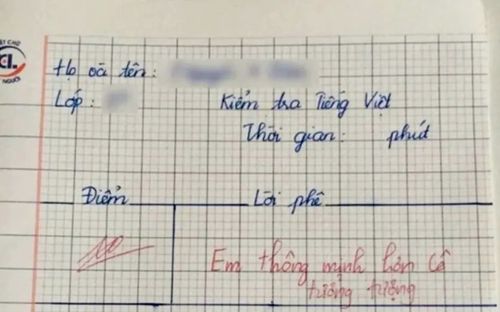 Họ và tên:
Lớp:
Kiểm tra Tiếng Việt
Thời gian: phút
Điểm
Lời phê
10
Em thông minh hơn Cô
tưởng tượng